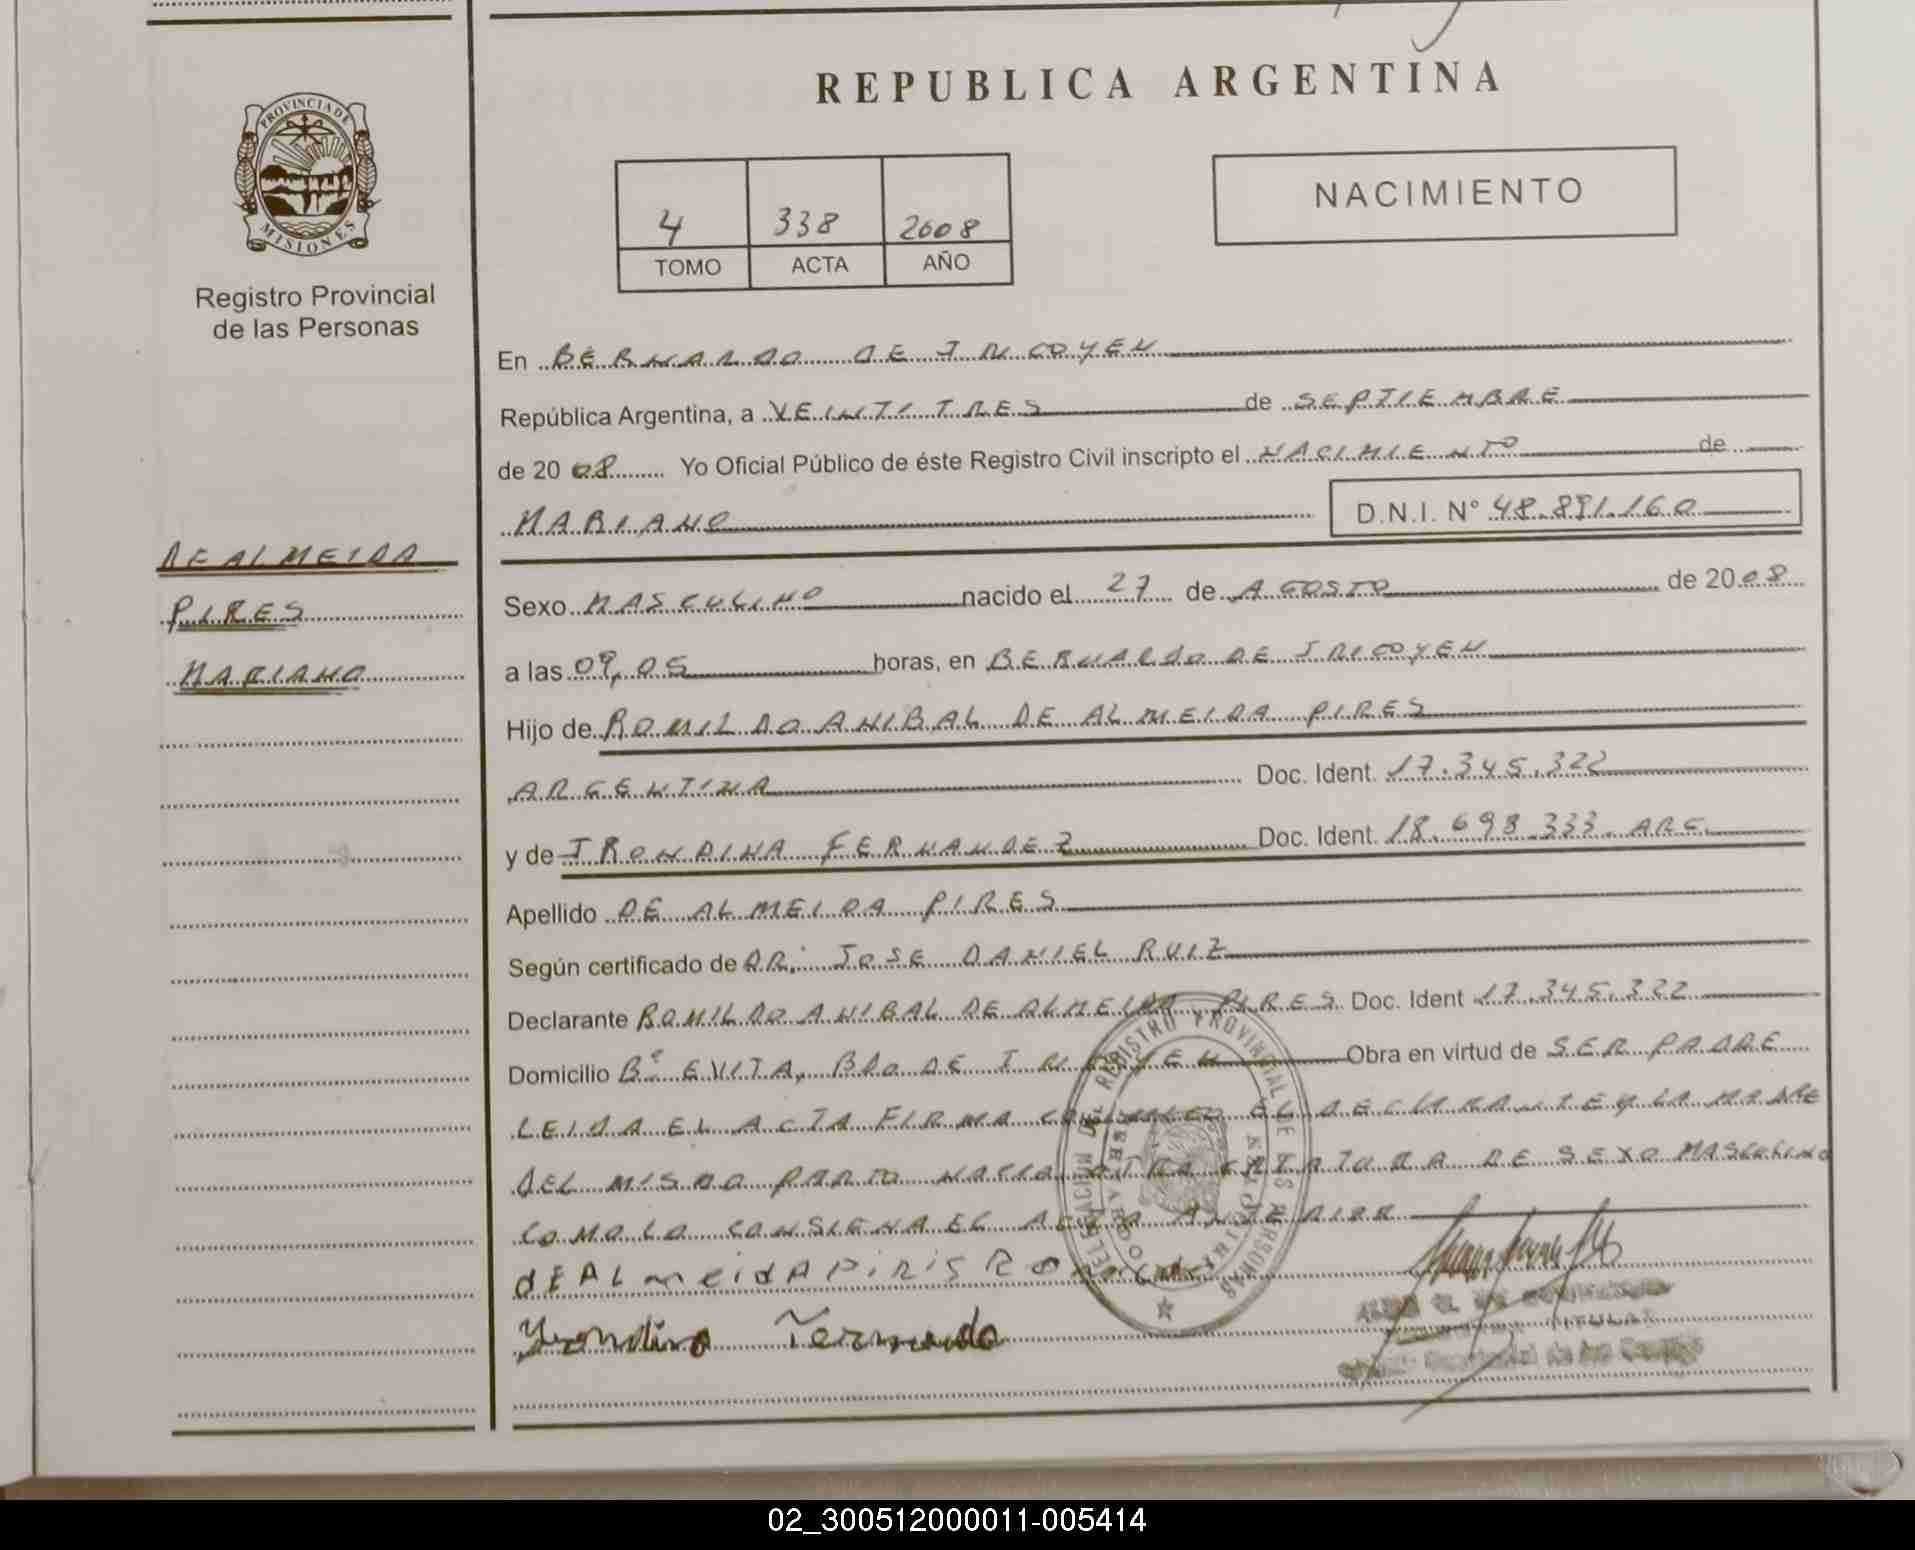 REPUBLICA ARGENTINA
PROVINCIA DE
MISIONES
Registro Provincial
de las Personas
4 338 2008
TOMO ACTA AÑO
NACIMIENTO
En BERNARDO DE IRIGOYEN
República Argentina, a VEINTI TRES de SEPTIEMBRE
de 20 08 Yo Oficial Público de éste Registro Civil inscripto el NACIMIENTO de
MARIANO D.N.I. N° 48.891.160
DE ALMEIDA
PIRES
MARIANO
Sexo MASCULINO nacido el 27 de AGOSTO de 20 08
a las 09,05 horas, en BERNARDO DE IRIGOYEN
Hijo de ROMILDO ANIBAL DE ALMEIDA PIRES
ARGENTINA Doc. Ident. 17.345.322
y de IRONDINA FERNANDEZ Doc. Ident. 18.698.333. ARG.
Apellido DE ALMEIDA PIRES
Según certificado de DR. JOSE DANIEL RUIZ
Declarante ROMILDO ANIBAL DE ALMEIDA PIRES Doc. Ident 17.345.322
Domicilio B° EVITA, BDO DE IRIGOYEN Obra en virtud de SER PADRE
LEIDA EL ACTA FIRMA CONMIGO EL DECLARANTE Y LA MADRE
DEL MISMO PARTO NACIO OTRA CRIATURA DE SEXO MASCULINO
COMO LO CONSIGNA EL ACTA
DE ALmeidA PiRis
Yrondina Fernande
REGISTRO PROVINCIAL DE LAS PERSONAS
TITULAR
02_300512000011-005414